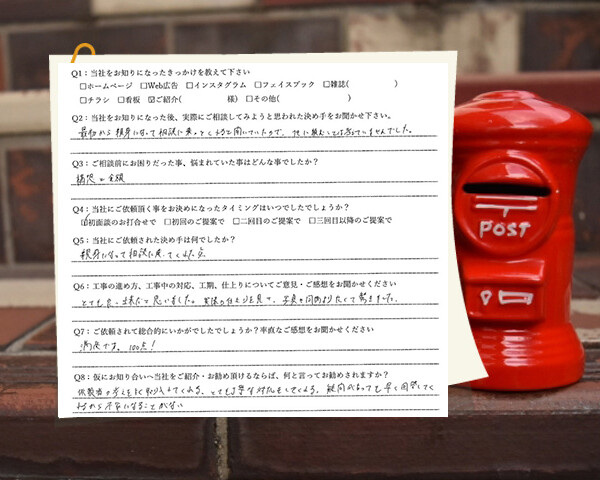 Q1：当社をお知りになったきっかけを教えて下さい
□ホームページ □Web広告 □インスタグラム □フェイスブック □雑誌( )
□チラシ □看板 ☑ご紹介( 様) □その他( )
Q2：当社をお知りになった後、実際にご相談してみようと思われた決め手をお聞かせ下さい。
最初から親身になって相談に乗ってくれると聞いていたので、他に頼むことは考えていませんでした。
Q3：ご相談前にお困りだった事、悩まれていた事はどんな事でしたか？
構成や金額
Q4：当社にご依頼頂く事をお決めになったタイミングはいつでしたでしょうか？
☑初面談のお打合せで □初回のご提案で □二回目のご提案で □三回目以降のご提案で
Q5：当社にご依頼された決め手は何でしたか？
親身になって相談に乗ってくれた点
Q6：工事の進め方、工事中の対応、工期、仕上りについてご意見・ご感想をお聞かせください
とても良い出来だと思いました。実際の仕上りを見て、
Q7：ご依頼されて総合的にいかがでしたでしょうか？率直なご感想をお聞かせください
満足です。100点！
Q8：仮にお知り合いへ当社をご紹介・お勧め頂けるならば、何と言ってお勧めされますか？
依頼者の考えをしてくれる、とても丁寧な対応をしてくれる、疑問があっても早く回答してく
れるから不安になることがない
POST